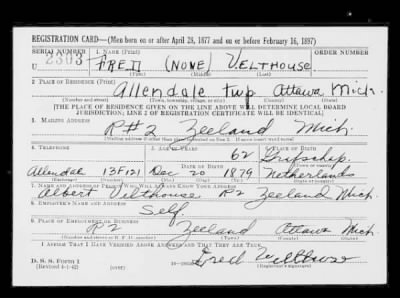 REGISTRATION CARD—(Men born on or after April 28, 1877 and on or before February 16, 1897)
SERIAL NUMBER 1. NAME (Print) ORDER NUMBER
U 2303 FRED (NONE) VELTHOUSE
(First) (Middle) (Last)
2. PLACE OF RESIDENCE (Print)
Allendale twp Ottawa Mich.
(Number and street) (Town, township, village, or city) (County) (State)
[THE PLACE OF RESIDENCE GIVEN ON THE LINE ABOVE WILL DETERMINE LOCAL BOARD
JURISDICTION; LINE 2 OF REGISTRATION CERTIFICATE WILL BE IDENTICAL]
3. MAILING ADDRESS
R#2 Zeeland Mich.
4. TELEPHONE 5. AGE IN YEARS 6. PLACE OF BIRTH
62
DATE OF BIRTH
Allendale 13F121 Dec 20 1879 Netherlands
(Exchange) (Number) (Mo.) (Day) (Yr.) (State or country)
7. NAME AND ADDRESS OF PERSON WHO WILL ALWAYS KNOW YOUR ADDRESS
Albert Velthouse R2 Zeeland Mich.
8. EMPLOYER'S NAME AND ADDRESS
Self.
9. PLACE OF EMPLOYMENT OR BUSINESS
R2 Zeeland Ottawa Mich
(Number and street or R. F. D. number) (Town) (County) (State)
I AFFIRM THAT I HAVE VERIFIED ABOVE ANSWERS AND THAT THEY ARE TRUE.
D. S. S. Form 1
(Revised 4-1-42) Fred Velthouse